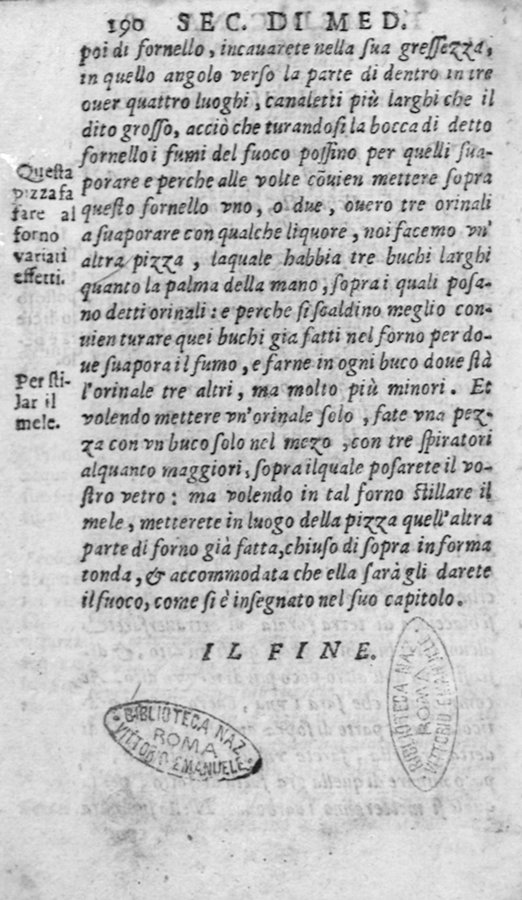 190 SEC. DI MED.
poi di fornello, incauarete nella sua greſſezza,
in quello angolo verso la parte di dentro in tre
ouer quattro luoghi, canaletti più larghi che il
dito groſſo, acciò che turandoſi la bocca di detto
fornello i fumi del fuoco poſſino per quelli ſua-
porare e perche alle volte cōuien mettere ſopra
queſto fornello vno, o due, ouero tre orinali
a ſuaporare con qualche liquore, noi facemo vn'
altra pizza, laquale habbia tre buchi larghi
quanto la palma della mano, ſopra i quali poſa-
no detti orinali: e perche ſi ſcaldino meglio con-
uien turare quei buchi gia fatti nel forno per do-
ue ſuapora il fumo, e farne in ogni buco doue ſtà
l'orinale tre altri, ma molto più minori. Et
volendo mettere vn'orinale ſolo, fate vna pez-
za con vn buco ſolo nel mezo, con tre ſpiratori
alquanto maggiori, ſopra ilquale poſarete il vo-
ſtro vetro: ma volendo in tal forno ſtillare il
mele, metterete in luogo della pizza quell'altra
parte di forno già fatta, chiuſo di ſopra in forma
tonda, & accommodata che ella ſarà gli darete
il fuoco, come ſi è inſegnato nel ſuo capitolo.
IL FINE.
Queſta
pizza fa
fare al
forno
variati
effetti.
Per ſti-
lar il
mele.
BIBLIOTECA NAZ.
ROMA
VITTORIO EMANUELE
BIBLIOTECA NAZ.
ROMA
VITTORIO EMANUELE